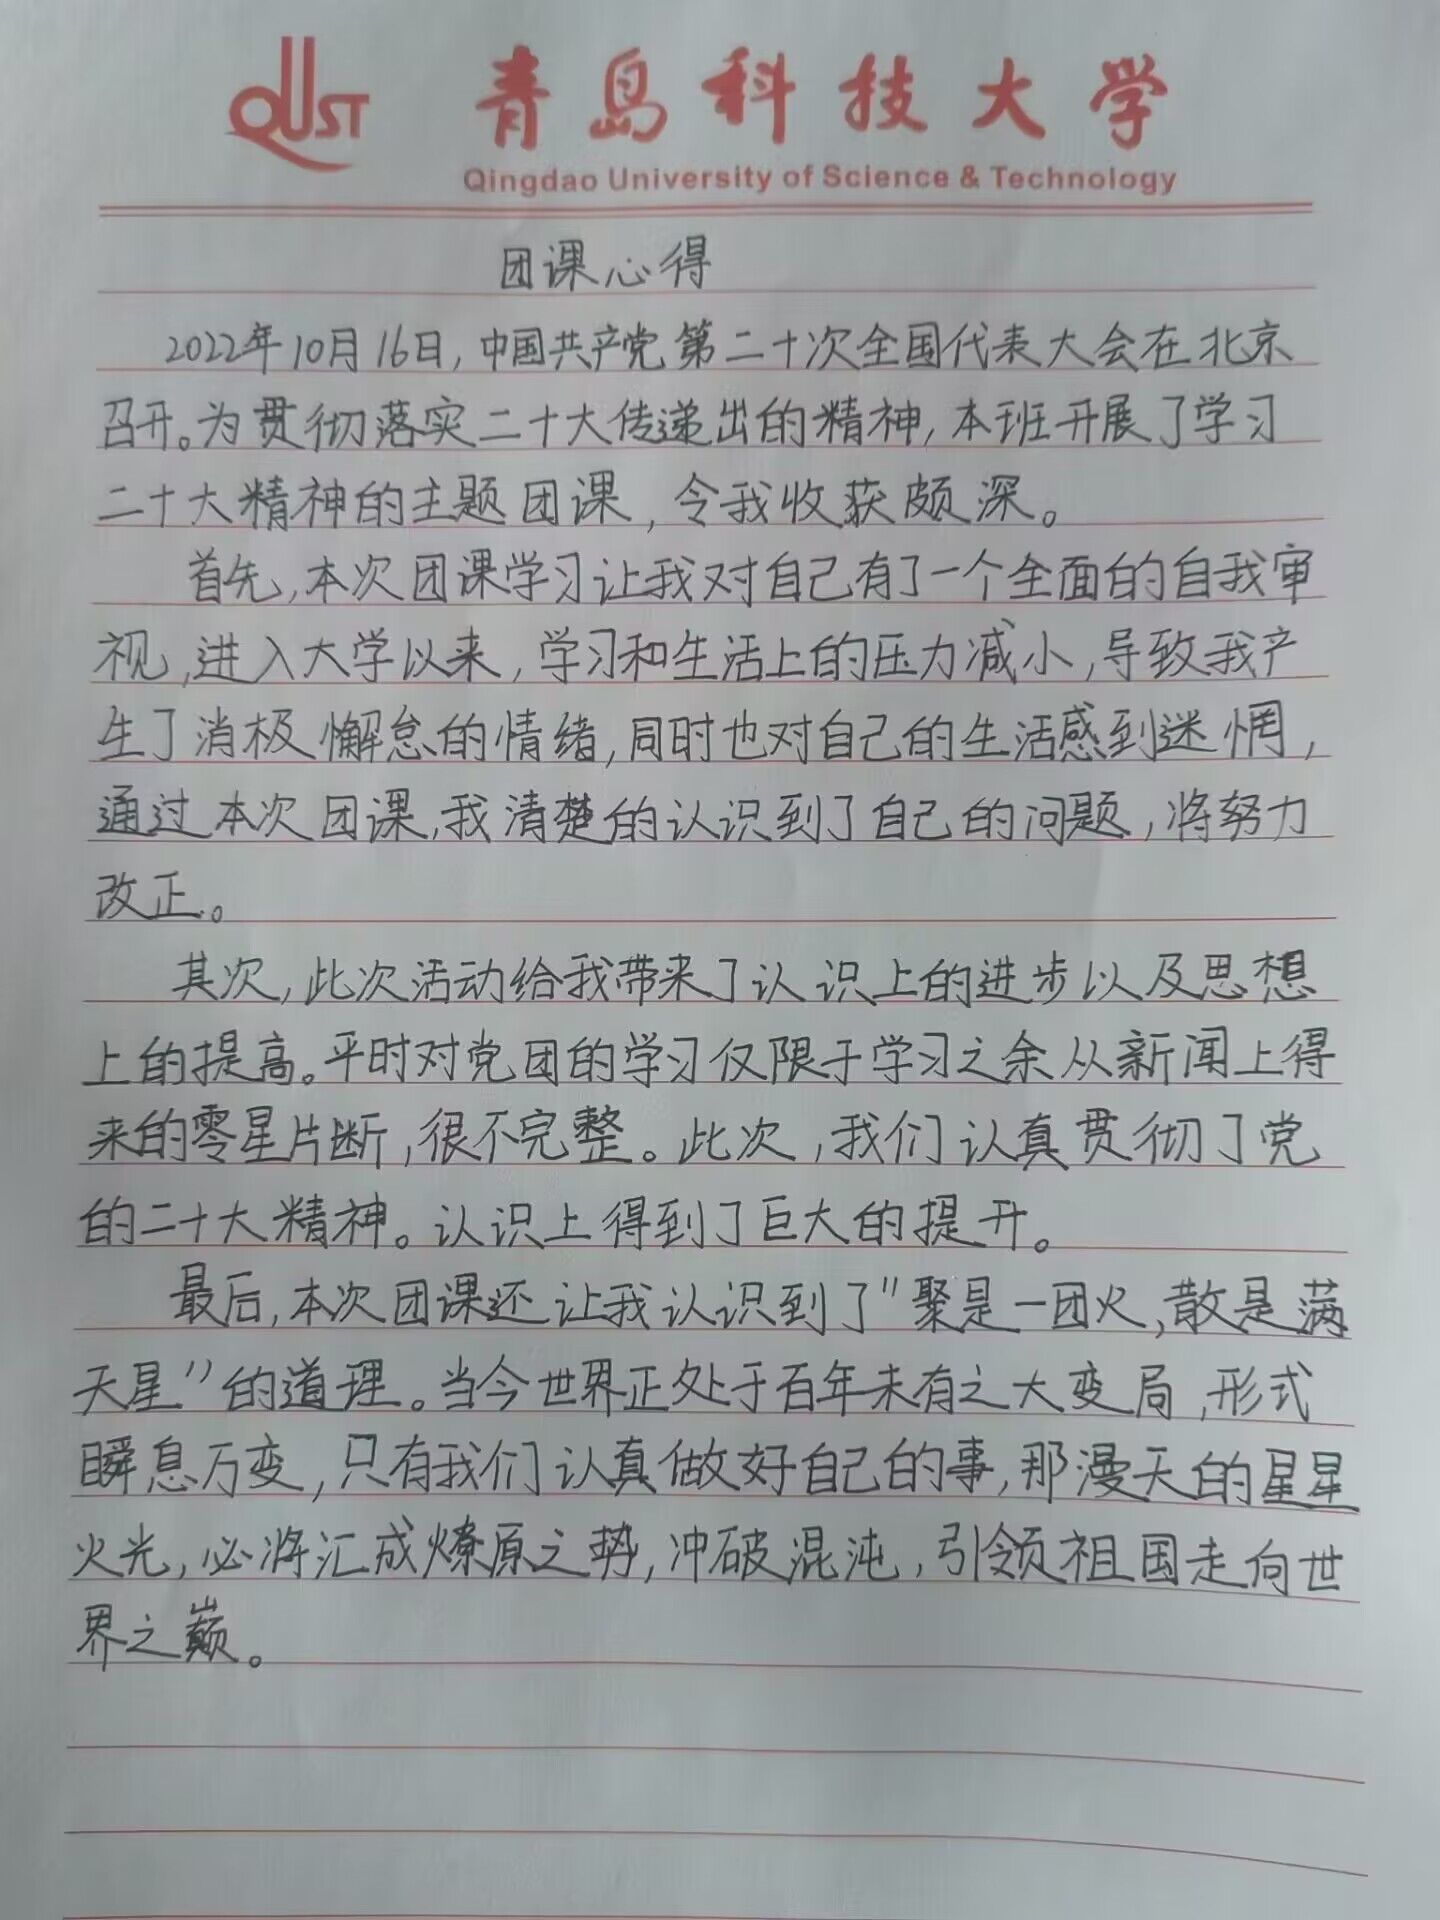 QUST 青岛科技大学
Qingdao University of Science & Technology
团课心得
2022年10月16日,中国共产党第二十次全国代表大会在北京
召开。为贯彻落实二十大传递出的精神,本班开展了学习
二十大精神的主题团课,令我收获颇深。
首先,本次团课学习让我对自己有了一个全面的自我审
视,进入大学以来,学习和生活上的压力减小,导致我产
生了消极懈怠的情绪,同时也对自己的生活感到迷惘,
通过本次团课,我清楚的认识到了自己的问题,将努力
改正。
其次,此次活动给我带来了认识上的进步以及思想
上的提高。平时对党团的学习仅限于学习之余从新闻上得
来的零星片断,很不完整。此次,我们认真贯彻了党
的二十大精神。认识上得到了巨大的提升。
最后,本次团课还让我认识到了"聚是一团火,散是满
天星"的道理。当今世界正处于百年未有之大变局,形式
瞬息万变,只有我们认真做好自己的事,那漫天的星星
火光,必将汇成燎原之势,冲破混沌,引领祖国走向世
界之巅。